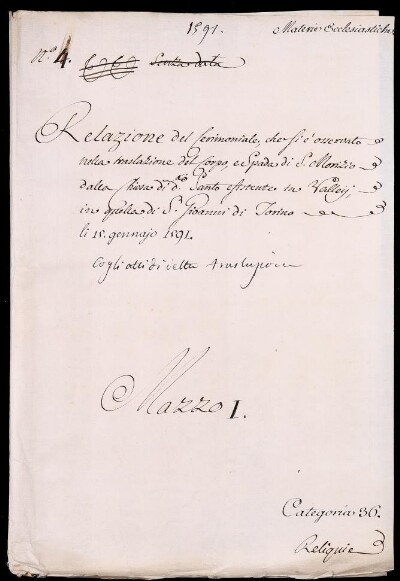 1591.
Materie Ecclesiastiche
N.º 4. Senza data
Relazione del Ceremoniale, che si è osservato
nella traslazione del Corpo, e Spada di S. Morizio
dalla Chiesa di d.º Santo esistente in Valley,
in quella di S. Gioanni di Torino
li 15. gennajo 1591.
Cogli atti di detta traslazione
Mazzo I.
Categoria 36.
Reliquie